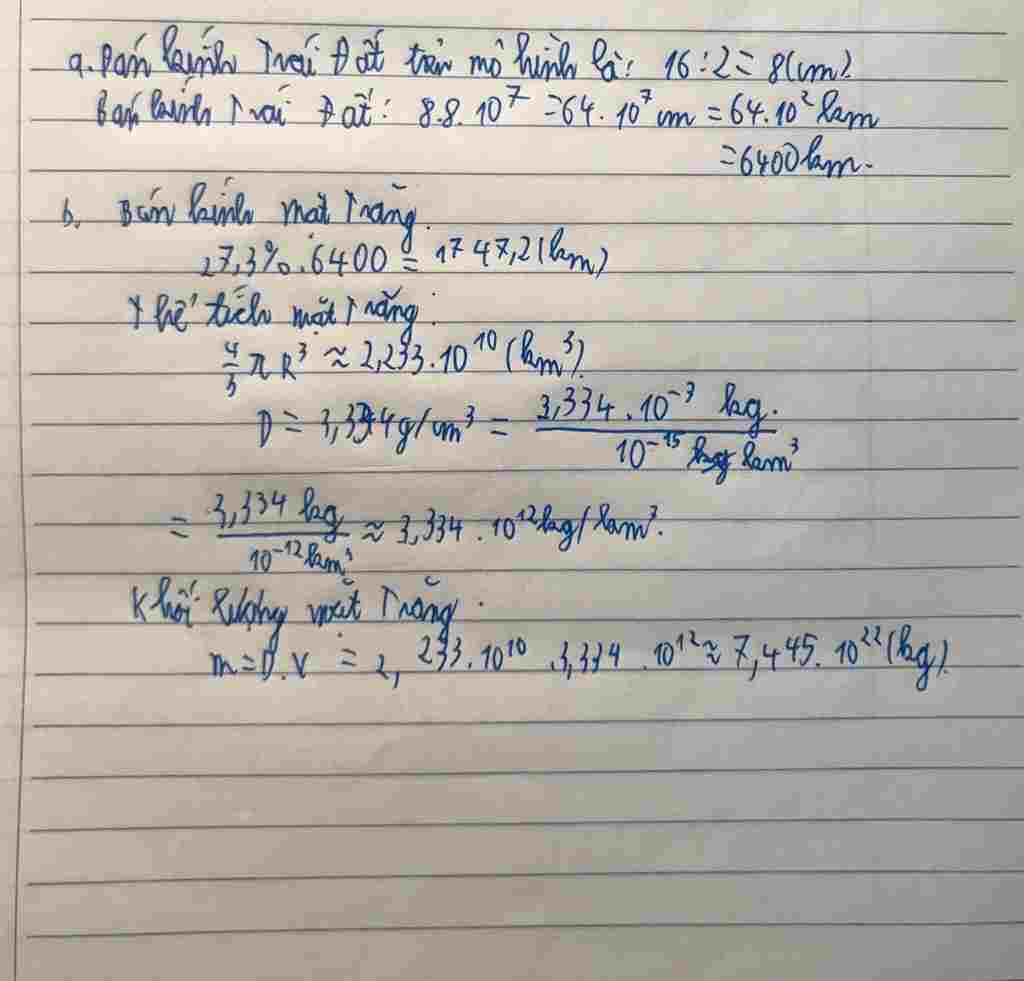 a. Bán kính Trái Đất trên mô hình là: 16 : 2 = 8(cm).
Bán kính Trái Đất: 8.8.10^7 = 64.10^7 cm = 64.10^2 km
= 6400 km.
b. Bán kính mặt Trăng.
27,3%.6400 = 1747,2(km)
Thể tích mặt Trăng:
4/3 π R^3 ≈ 2,233.10^10 (km^3).
D = 3,334g/cm^3 = 3,334.10^-3 kg. / 10^-15 km^3
= 3,334 kg / 10^-12 km^3 ≈ 3,334.10^12 kg/km^3.
Khối lượng mặt Trăng.
m = D.V = 2,233.10^10.3,334.10^12 ≈ 7,445.10^22 (kg).